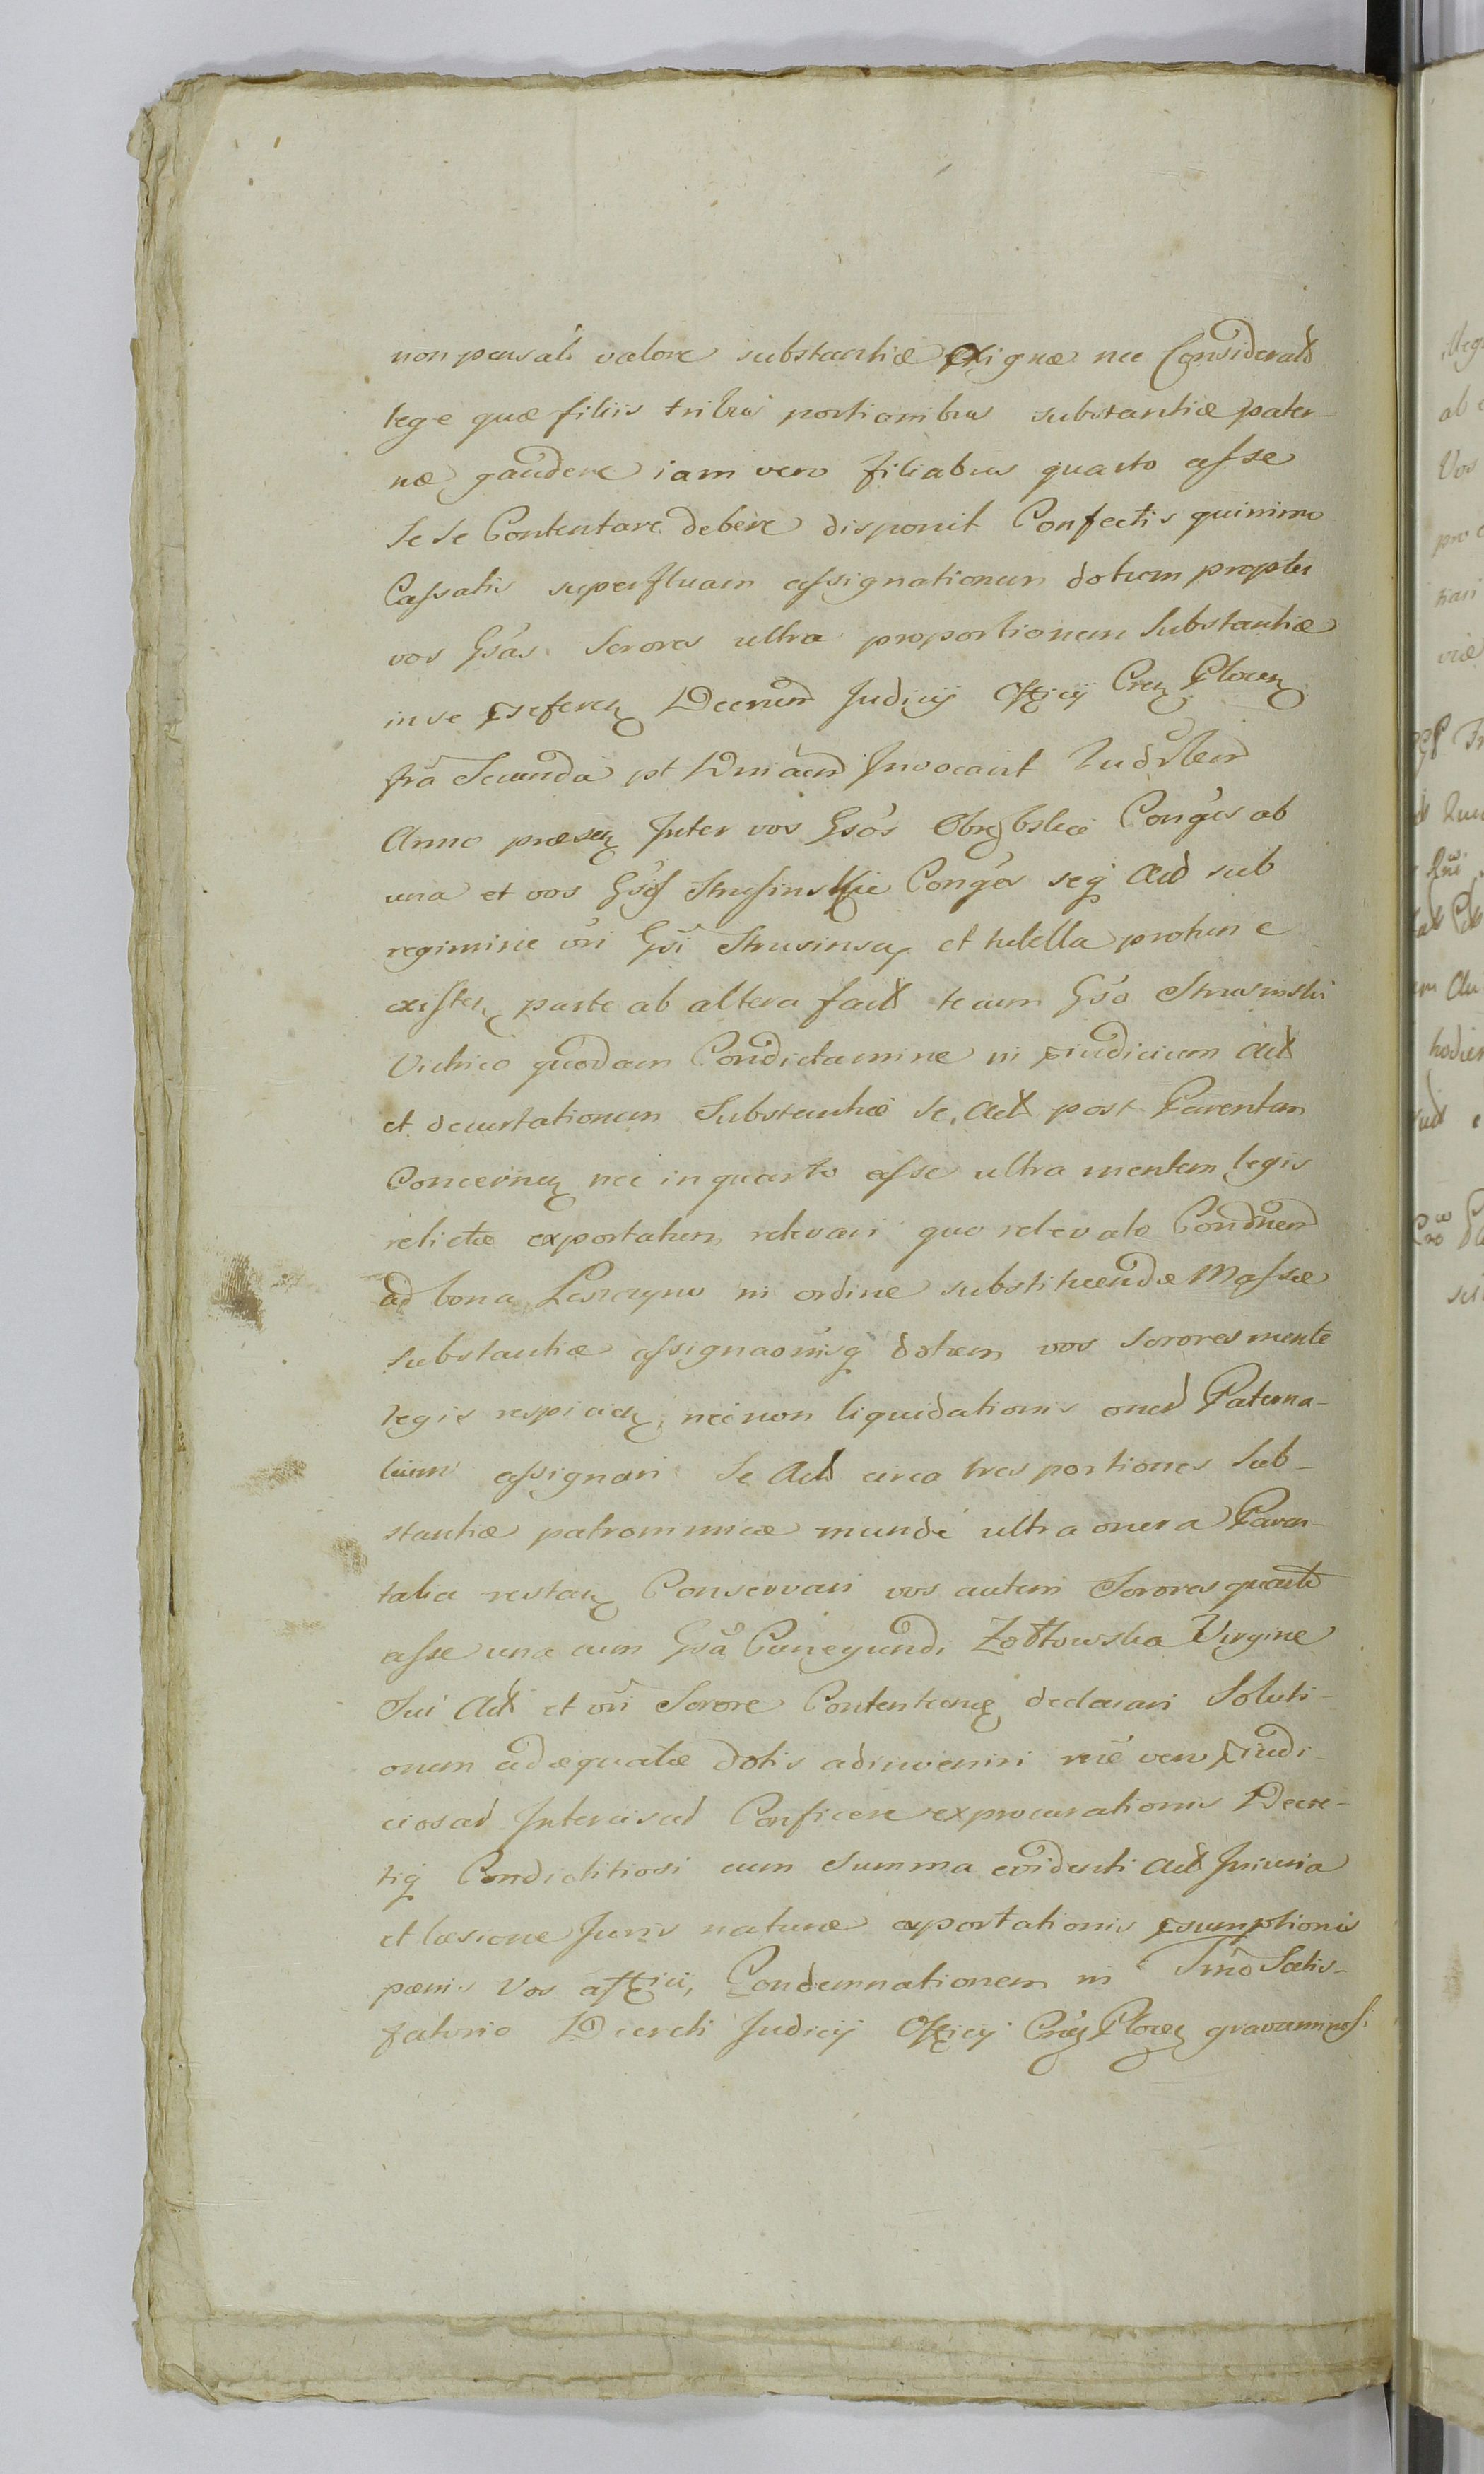 non pensato valore substantiæ exiguæ nec Considerato
lege quæ filiis tribus portionibus substantiæ pater-
næ gaudere iam vero filiabus quarto asse
se se Contentare debere disponit Confectis quinimo
Cassatis superfluam assignationem dotium propter
vos Gsas Sorores ultra proportionem Substantiæ
in se referen Decretum Judicij Officij Cren Plocen
fra Secunda pt Dnicam Invocavit
Anno præsen Inter vos Gsos Conges ab
una et vos Gsos Conges seq Act sub
regimine vri Gsi Strusinski et tutella protunc
existen parte ab altera fact tecum Gso Strusinski
Vitrico quodam Condictamine in præiudicium Act
et decurtationem Substantiæ se Act post Parentem
Concernen nec in quarto asse ultra mentem legis
relictæ exportatum relevari quo relevato Condnem
ad bona Leszczyno in ordine substituendæ Massæ
substantiæ assignaonisq dotium vos Sorores mente
legis respicien, nec non liquidationis oner Paterna-
lium assignari se Act circa tres portiones Sub-
stantiæ patrommicæ mundé ultra onera Paren-
talia restan Conservari vos autem Sorores quarto
asse una cum Gsa Cunegundi Zołtowska Virgine
Sui Act et vri Sorore Contentanq declarari Soluti-
onem adæquatæ dotis adinveniri rne vero præiudi-
ciosad Intercisad Conficere ex procurationis Decre-
tiq Condictitiosi cum summa evidenti Act Iniuria
et læsione Juris naturæ exportationis præsumptionis
pœnis Vos affici, Condemnationem in Tmno Satis-
fatorio Decreti Judicij Officij Cren Plocen gravaminosi